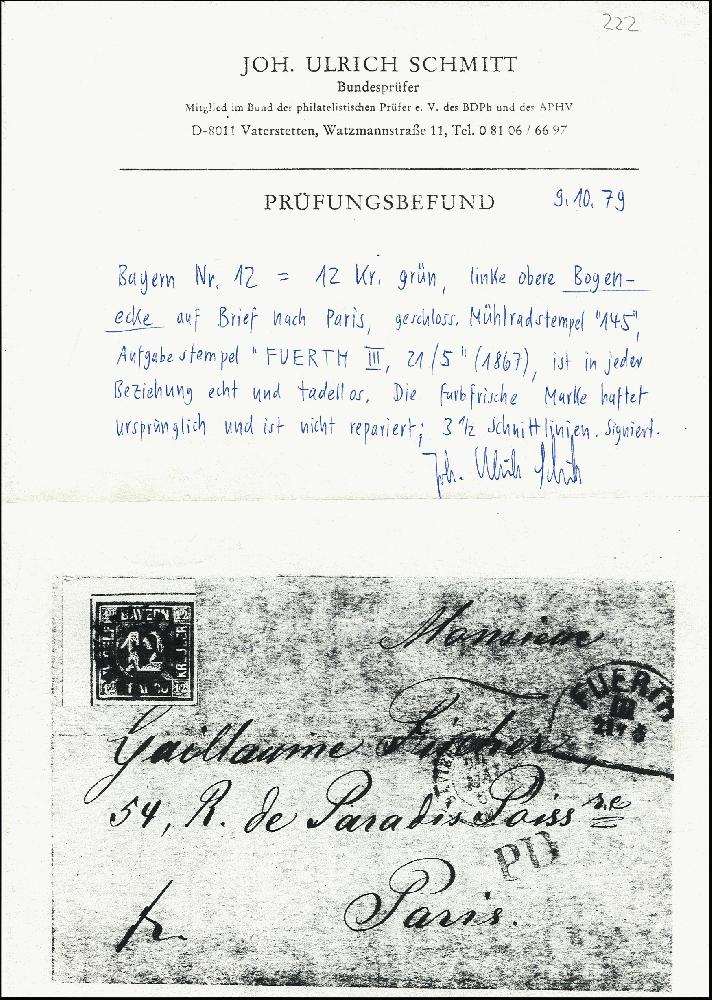 222
JOH. ULRICH SCHMITT
Bundesprüfer
Mitglied im Bund der philatelistischen Prüfer e. V. des BDPh und des APHV
D-8011 Vaterstetten, Watzmannstraße 11, Tel. 0 81 06 / 66 97
PRÜFUNGSBEFUND 9.10.79
Bayern Nr. 12 = 12 Kr. grün, linke obere Bogen-
ecke auf Brief nach Paris, geschloss. Mühlradstempel "145",
Aufgabestempel "FUERTH III, 21/5" (1867), ist in jeder
Beziehung echt und tadellos. Die farbfrische Marke haftet
ursprünglich und ist nicht repariert; 3 1/2 Schnittlinien. Signiert.
Joh. Ulrich Schmitt
BAYERN
12
KREUZER
Monsieur
FUERTH
III
21 5
Guillaume Fischer
54, R. de Paradis Poiss re
PD
Paris.
fr.